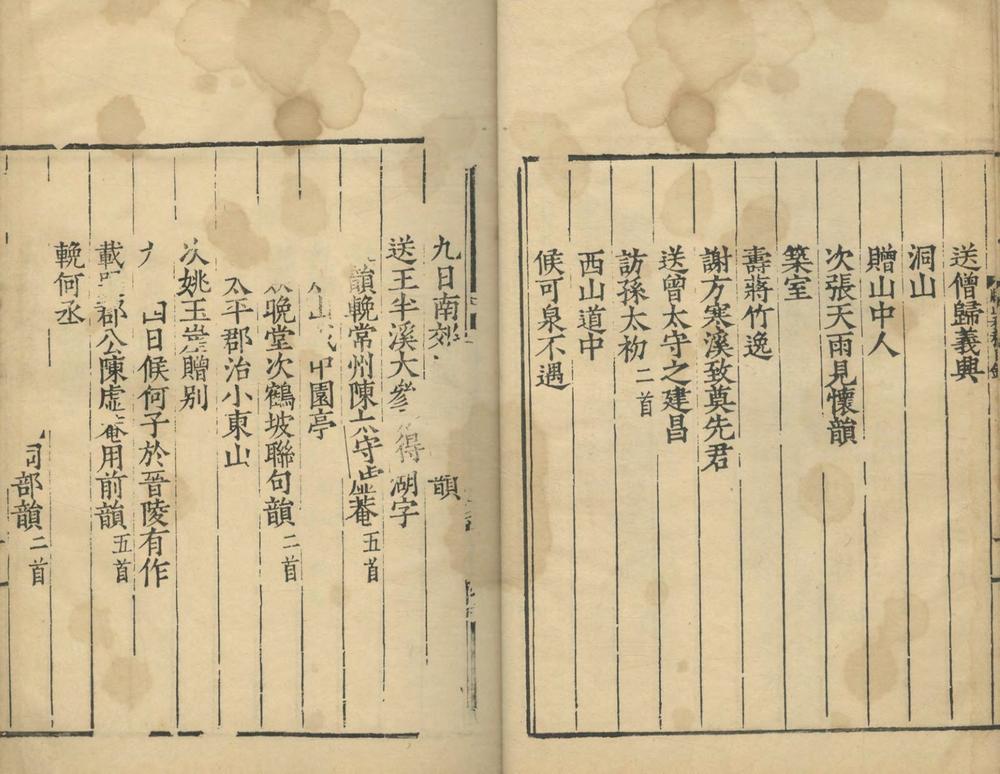 送僧歸義興
洞山
贈山中人
次張天雨見懷韻
築室
壽蔣竹逸
謝方寒溪致奠先君
送曾太守之建昌
訪孫太初二首
西山道中
候可泉不遇
九日南郊 韻
送王半溪大參 得湖字
韻輓常州陳 守虛菴五首
園亭
晚堂次鶴坡聯句韻二首
太平郡治小東山
次姚玉崖贈別
日候何子於晉陵有作
載 郡公陳虛菴用前韻五首
輓何丞
部韻二首